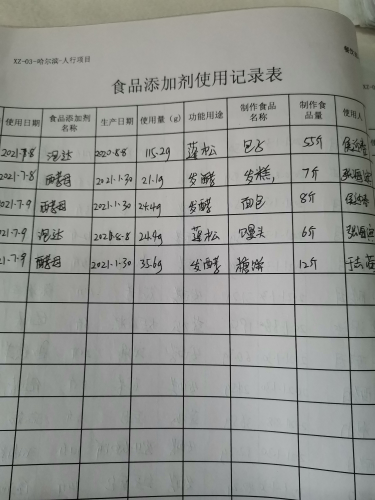 XZ-03-哈尔滨-人行项目
食品添加剂使用记录表
使用日期 食品添加剂名称 生产日期 使用量（g） 功能用途 制作食品名称 制作食品量 使用人
2021-7-8 泡达 2020-8-8 115.2g 蓬松 包子 55斤
2021-7-8 酵母 2021-1-30 21.1g 发酵 发糕 7斤
2021-7-9 酵母 2021-1-30 24.4g 发酵 面包 8斤
2021-7-9 泡达 2020-8-8 24.4g 蓬松 馒头 6斤
21-7-9 酵母 2021-1-30 35.6g 发酵 糖饼 12斤